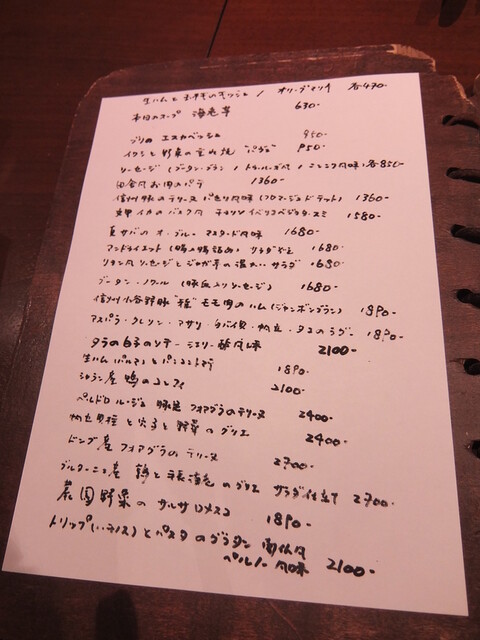 生ハムと の / オリーブマリネ 各470-
本日のスープ 海老芋 630-
ブリの エスカベッシュ 950-
イワシと野菜の 焼 "パヴェ" 950-
ソーセージ (ブータン・ブラン / トゥルーズ風 / ニンニク風味) 各850-
田舎風お肉のパテ 1360-
信州豚のテリーヌ パセリ風味 (フロマージュ ド テット) 1360-
イカのバスク風 チョリソ イベリコベジョータ 1580-
夏サバのオ・ブルー マスタード風味 1680-
アンドゥイエット (腸の腸詰め) サラダ 1680-
リヨン風ソーセージとジャガ芋の温かいサラダ 1680-
ブータン・ノワール (豚血入りソーセージ) 1680-
信州小谷野豚 モモ肉のハム (ジャンボンブラン) 1890-
アスパラ・クレソン・アサリ・ 貝・帆立・タコのラグー 1890-
タラの白子のソテー シェリー酢風味 2100-
生ハム(パルマ)とパンコントマテ 1890-
シャラン産鴨のコンフィ 2100-
ペルドロ・ルージュ 豚足 フォアグラのテリーヌ 2400-
帆立貝柱と穴子と野菜のグリエ 2400-
ドンブ産 フォアグラのテリーヌ 2700-
ブルターニュ産 鶏と手長海老のグリエ サラダ仕立て 2700-
農園野菜の サルサロメスコ 1890-
トリップ(ハチノス)とパスタのグラタン 南仏風
ペルノー風味 2100-